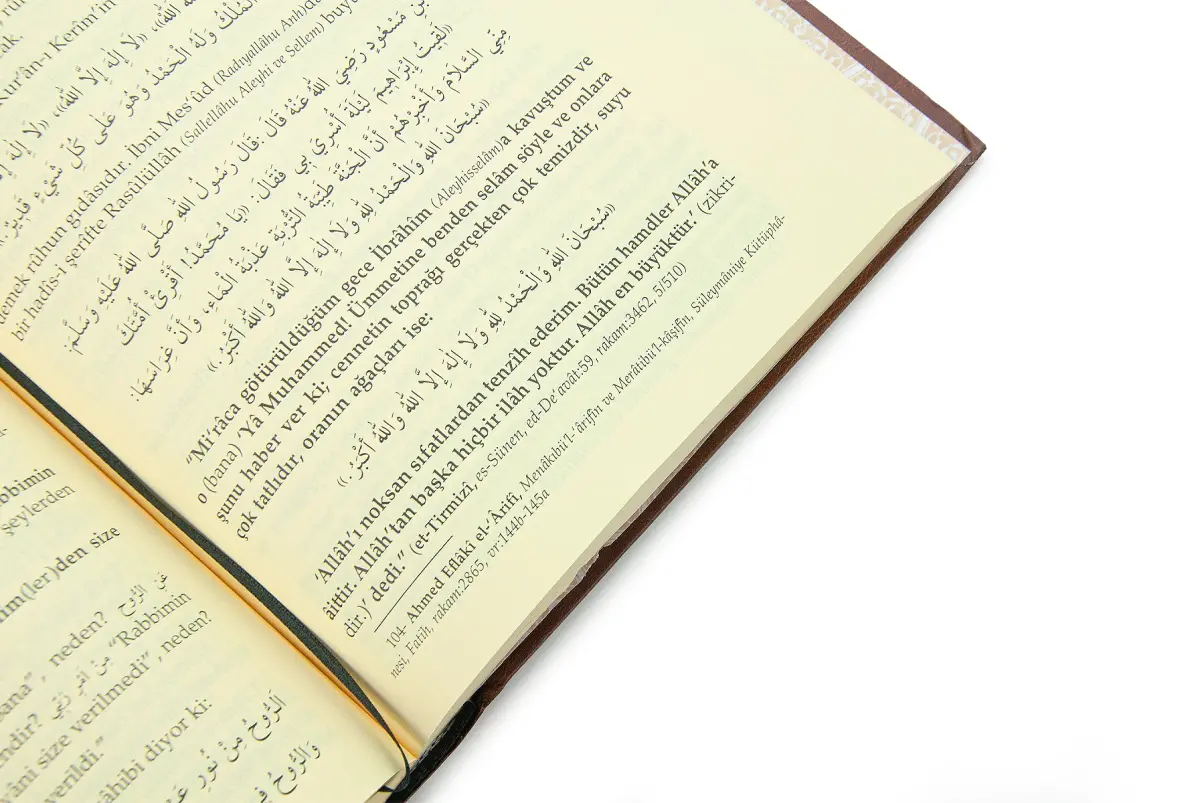 Kur'ân-ı Kerîm'in
«لَا إِلٰهَ إِلَّا اللهُ»
الْمُلْكُ وَلَهُ الْحَمْدُ وَهُوَ عَلٰى كُلِّ شَيْءٍ قَدِيرٌ
rûhun gıdâsıdır. İbni Mes'ûd (Radıyallâhu Anh)
bir hadîs-i şerîfte Rasûlüllâh (Sallellâhu Aleyhi ve Sellem)
مَسْعُودٍ رَضِيَ اللهُ عَنْهُ قَالَ: قَالَ رَسُولُ اللهِ صَلَّى اللهُ عَلَيْهِ وَسَلَّمَ:
«لَقِيتُ إِبْرَاهِيمَ لَيْلَةَ أُسْرِيَ بِي فَقَالَ: «يَا مُحَمَّدُ! أَقْرِئْ أُمَّتَكَ
مِنِّي السَّلَامَ وَأَخْبِرْهُمْ أَنَّ الْجَنَّةَ طَيِّبَةُ التُّرْبَةِ عَذْبَةُ الْمَاءِ، وَأَنَّ غِرَاسَهَا:
«سُبْحَانَ اللهِ وَالْحَمْدُ لِلهِ وَلَا إِلٰهَ إِلَّا اللهُ وَاللهُ أَكْبَرُ.»
"Mi'râca götürüldüğüm gece İbrâhîm (Aleyhisselâm)a kavuştum ve
o (bana) 'Yâ Muhammed! Ümmetine benden selâm söyle ve onlara
şunu haber ver ki; cennetin toprağı gerçekten çok temizdir, suyu
çok tatlıdır, oranın ağaçları ise:
«سُبْحَانَ اللهِ وَالْحَمْدُ لِلهِ وَلَا إِلٰهَ إِلَّا اللهُ وَاللهُ أَكْبَرُ.»
'Allâh'ı noksan sıfatlardan tenzîh ederim. Bütün hamdler Allâh'a
âittir. Allâh'tan başka hiçbir ilâh yoktur. Allâh en büyüktür.' (zikri-
dir.)' dedi." (et-Tirmizî, es-Sünen, ed-De'avât:59, rakam:3462, 5/510)
104- Ahmed Eflâkî el-'Ârifî, Menâkıbü'l-'ârifîn ve Merâtibü'l-kâşifîn, Süleymâniye Kütüphâ-
nesi, Fatih, rakam:2865, vr:144b-145a
şeylerden
(ler)den size
neden? عَنِ الرُّوحِ
مِنْ اَمْرِ رَبّ۪ي "Rabbimin
size verilmedi", neden?
verildi."
sâhibi diyor ki:
اَلرُّوحُ مِنْ نُورِ
وَالرُّوحُ